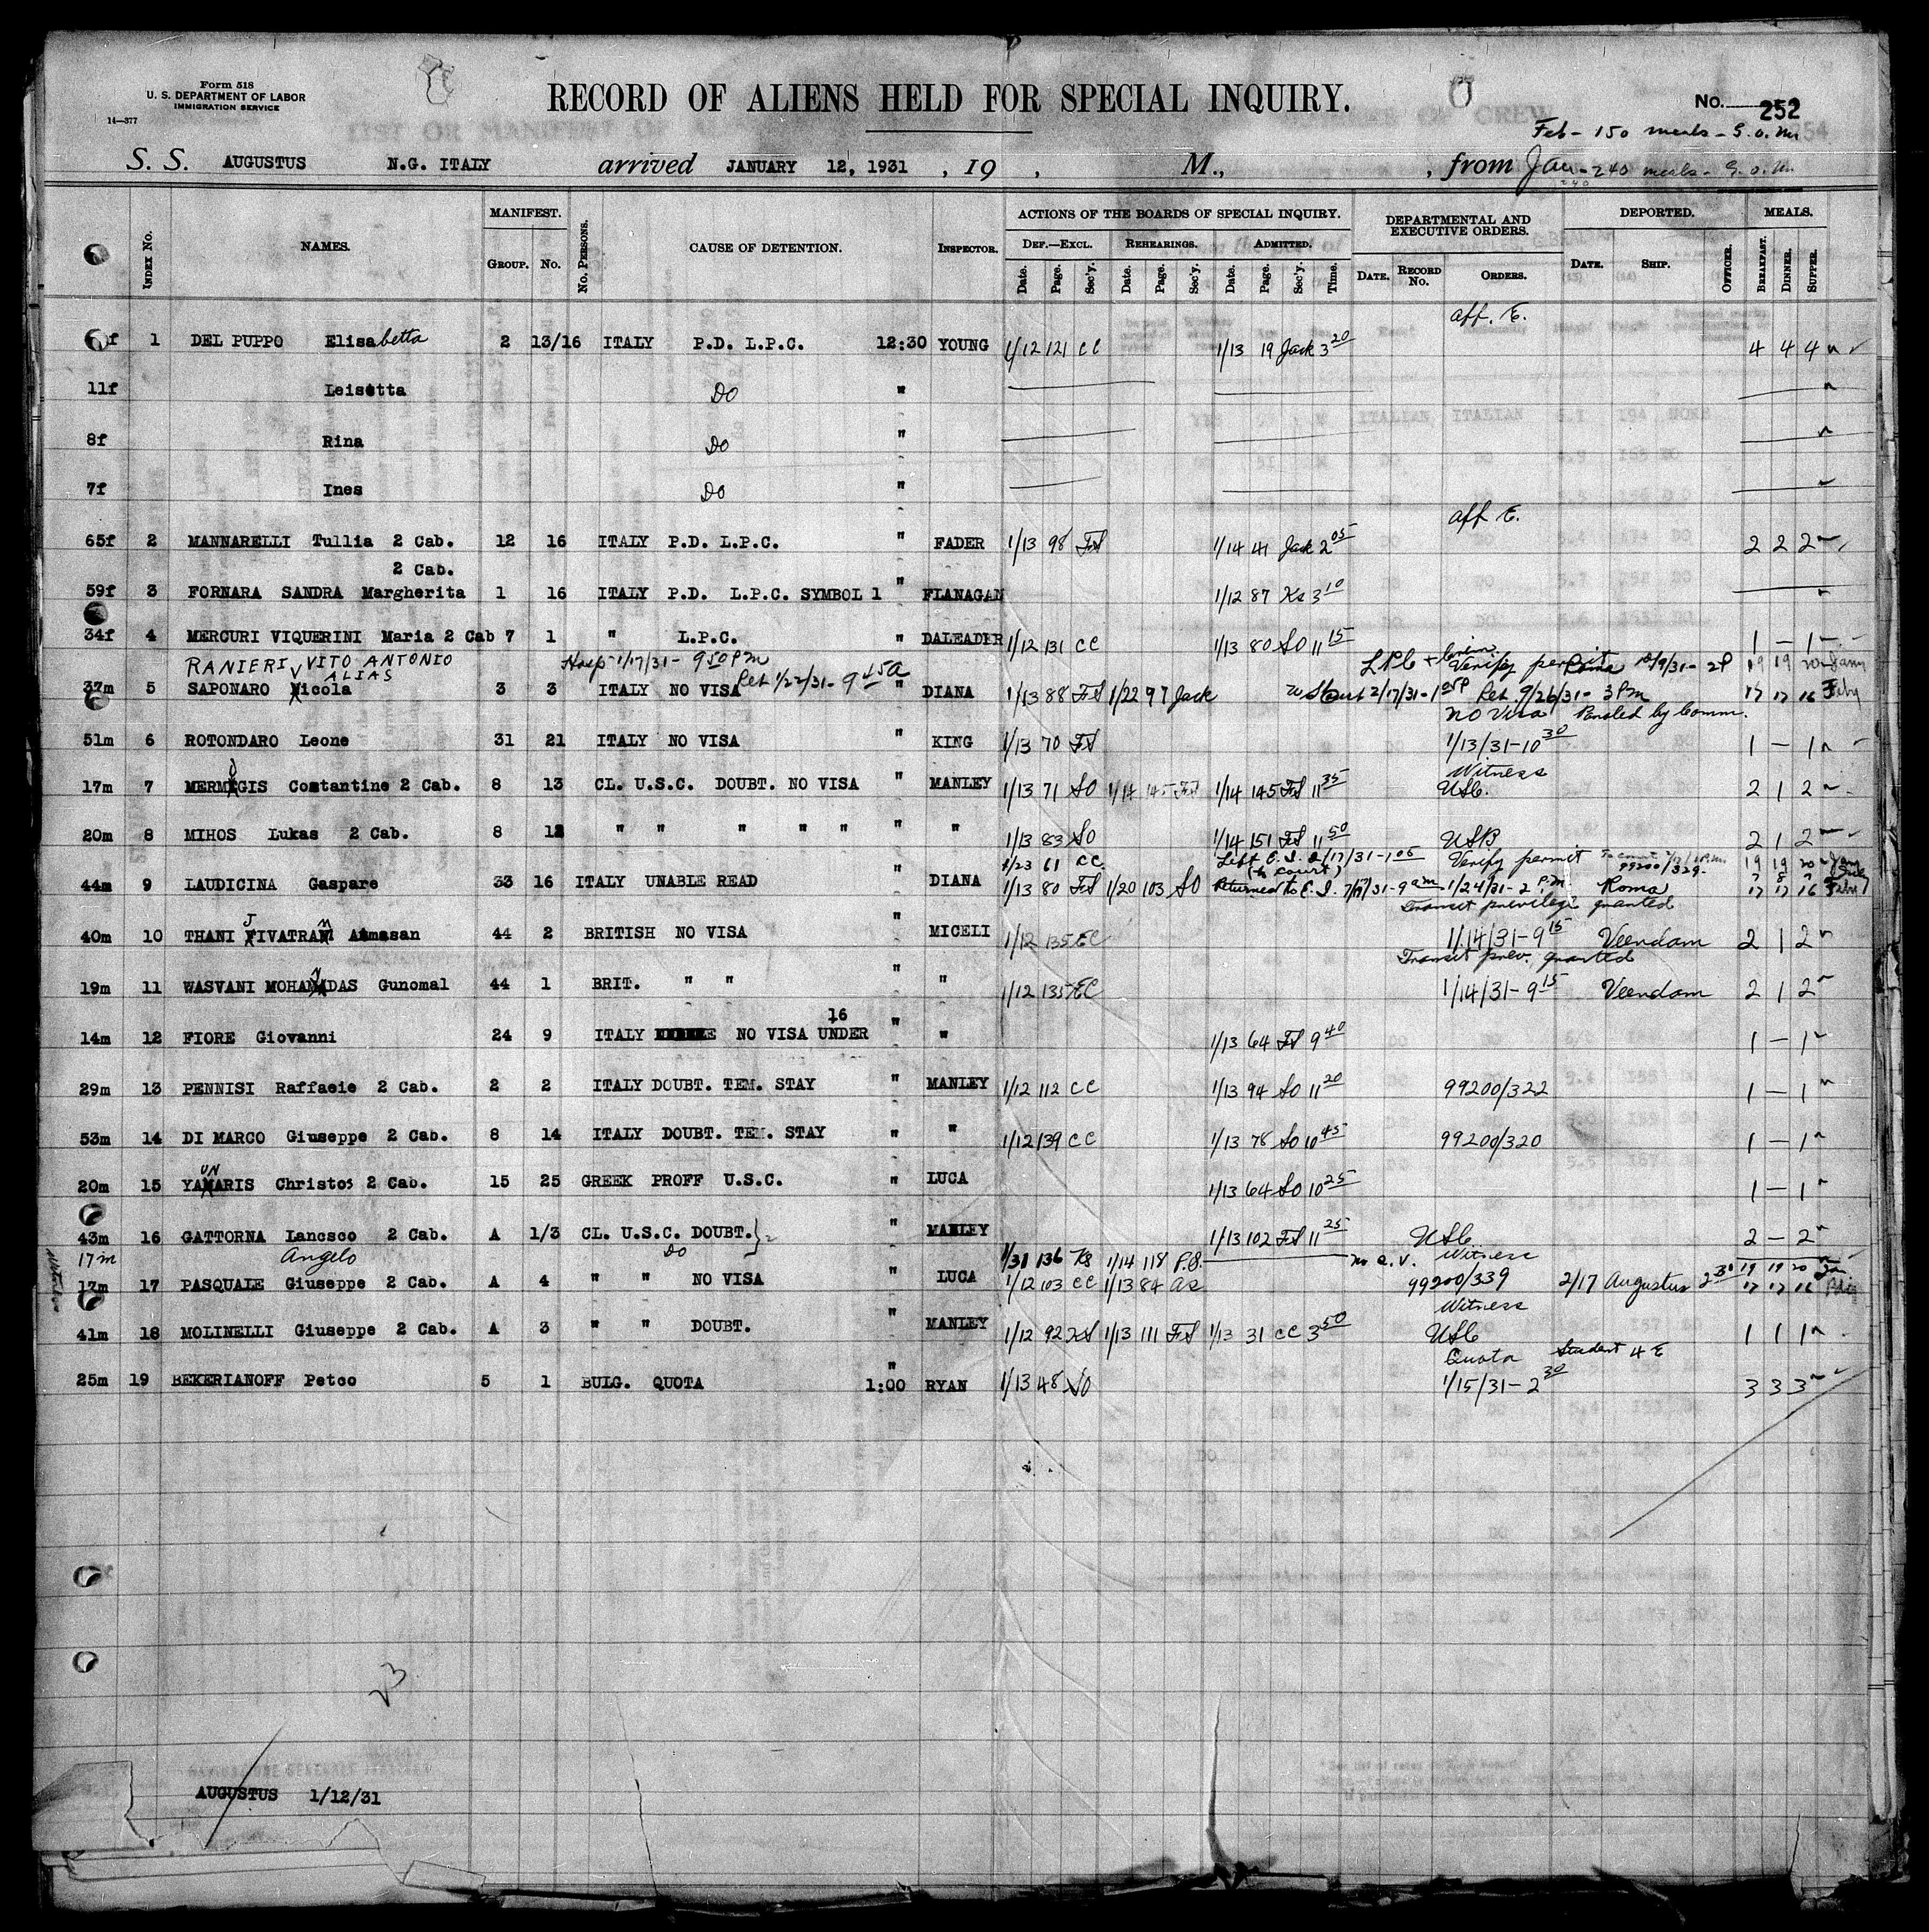 Form 518
U. S. DEPARTMENT OF LABOR
IMMIGRATION SERVICE
14—377
RECORD OF ALIENS HELD FOR SPECIAL INQUIRY.
No. 252
Feb - 150 meals - S.O.M.
S. S. AUGUSTUS N.G. ITALY arrived JANUARY 12, 1931 , 19 , M., , from Jan - 240 meals - S.O.M.
240
INDEX NO. NAMES. MANIFEST. GROUP. NO. NO. PERSONS. CAUSE OF DETENTION. INSPECTOR. ACTIONS OF THE BOARDS OF SPECIAL INQUIRY. DEF.—EXCL. Date. Page. Sec'y. REHEARINGS. Date. Page. Sec'y. ADMITTED. Date. Page. Sec'y. Time. DEPARTMENTAL AND EXECUTIVE ORDERS. DATE. RECORD NO. ORDERS. DEPORTED. DATE. SHIP. OFFICER. MEALS. BREAKFAST. DINNER. SUPPER.
aff. E.
f 1 DEL PUPPO Elisabetta 2 13/16 ITALY P.D. L.P.C. 12:30 YOUNG 1/12 121 CC 1/13 19 Jack 3 20 4 4 4
11f Leisetta DO "
8f Rina DO "
7f Ines DO "
aff E.
65f 2 MANNARELLI Tullia 2 Cab. 12 16 ITALY P.D. L.P.C. " FADER 1/13 98 FS 1/14 41 Jack 2 05 2 2 2
2 Cab.
59f 3 FORNARA SANDRA Margherita 1 16 ITALY P.D. L.P.C. SYMBOL 1 " FLANAGAN 1/12 87 Ks 3 10
34f 4 MERCURI VIQUERINI Maria 2 Cab 7 1 " L.P.C. " DALEADER 1/12 131 CC 1/13 80 SO 11 15 1 — 1
RANIERI VITO ANTONIO Hosp 1/17/31- 9 50 PM LPC + Verify permit Roma 10/9/31- 2P 19 19 20 Jany
ALIAS Ret 1/22/31- 9 45 a
37m 5 SAPONARO Nicola 3 3 ITALY NO VISA " DIANA 1/13 88 FS 1/22 97 Jack Court 2/17/31-1 05 P Ret. 9/26/31- 3 PM 17 17 16 Feby
No Visa Paroled by Comm.
51m 6 ROTONDARO Leone 31 21 ITALY NO VISA " KING 1/13 70 FS 1/13/31-10 30 1 — 1
Witness
17m 7 MERMIGIS Costantine 2 Cab. 8 13 CL. U.S.C. DOUBT. NO VISA " MANLEY 1/13 71 SO 1/14 145 FS 1/14 145 FS 11 35 USC. 2 1 2
20m 8 MIHOS Lukas 2 Cab. 8 12 " " " " " " " 1/13 83 SO 1/14 151 FS 11 50 USB 2 1 2
1/23 61 CC Left E.I. 2/17/31-1 05 (to court) Verify permit 99200/329 19 19 20 Jany
44m 9 LAUDICINA Gaspare 33 16 ITALY UNABLE READ " DIANA 1/13 80 FS 1/20 103 SO Returned to E.I. 9 am 1/24/31-2 P.M Roma 17 17 16 Feby
Transit privilege granted
40m 10 THANI JIVATRAM Atmasan 44 2 BRITISH NO VISA " MICELI 1/12 135 EC 1/14/31-9 15 Veendam 2 1 2
Transit priv. granted
19m 11 WASVANI MOHANDAS Gunomal 44 1 BRIT. " " " " 1/12 135 EC 1/14/31-9 15 Veendam 2 1 2
16
14m 12 FIORE Giovanni 24 9 ITALY NO VISA UNDER " " 1/13 64 FS 9 40 1 — 1
29m 13 PENNISI Raffaele 2 Cab. 2 2 ITALY DOUBT. TEM. STAY " MANLEY 1/12 112 CC 1/13 94 SO 11 20 99200/322 1 — 1
53m 14 DI MARCO Giuseppe 2 Cab. 8 14 ITALY DOUBT. TEM. STAY " " 1/12 139 CC 1/13 78 SO 10 45 99200/320 1 — 1
UN
20m 15 YAMARIS Christos 2 Cab. 15 25 GREEK PROFF U.S.C. " LUCA 1/13 64 SO 10 25 1 — 1
43m 16 GATTORNA Lancsco 2 Cab. A 1/3 CL. U.S.C. DOUBT. " MANLEY 1/13 102 FS 11 25 USC 2 — 2
17m Angelo Do 1/31 136 KS 1/14 118 P.B. Witness
17m 17 PASQUALE Giuseppe 2 Cab. A 4 " " NO VISA " LUCA 1/12 103 CC 1/13 84 as 99200/339 2/17 Augustus 19 19 20 Jan
17 17 16
Witness
41m 18 MOLINELLI Giuseppe 2 Cab. A 3 " " DOUBT. " MANLEY 1/12 92 KS 1/13 111 FS 1/13 31 CC 3 50 USC 1 1 1
Quota Student 4 E
25m 19 BEKERIANOFF Petco 5 1 BULG. QUOTA " 1:00 RYAN 1/13 48 SO 1/15/31-2 30 3 3 3
23
AUGUSTUS 1/12/31